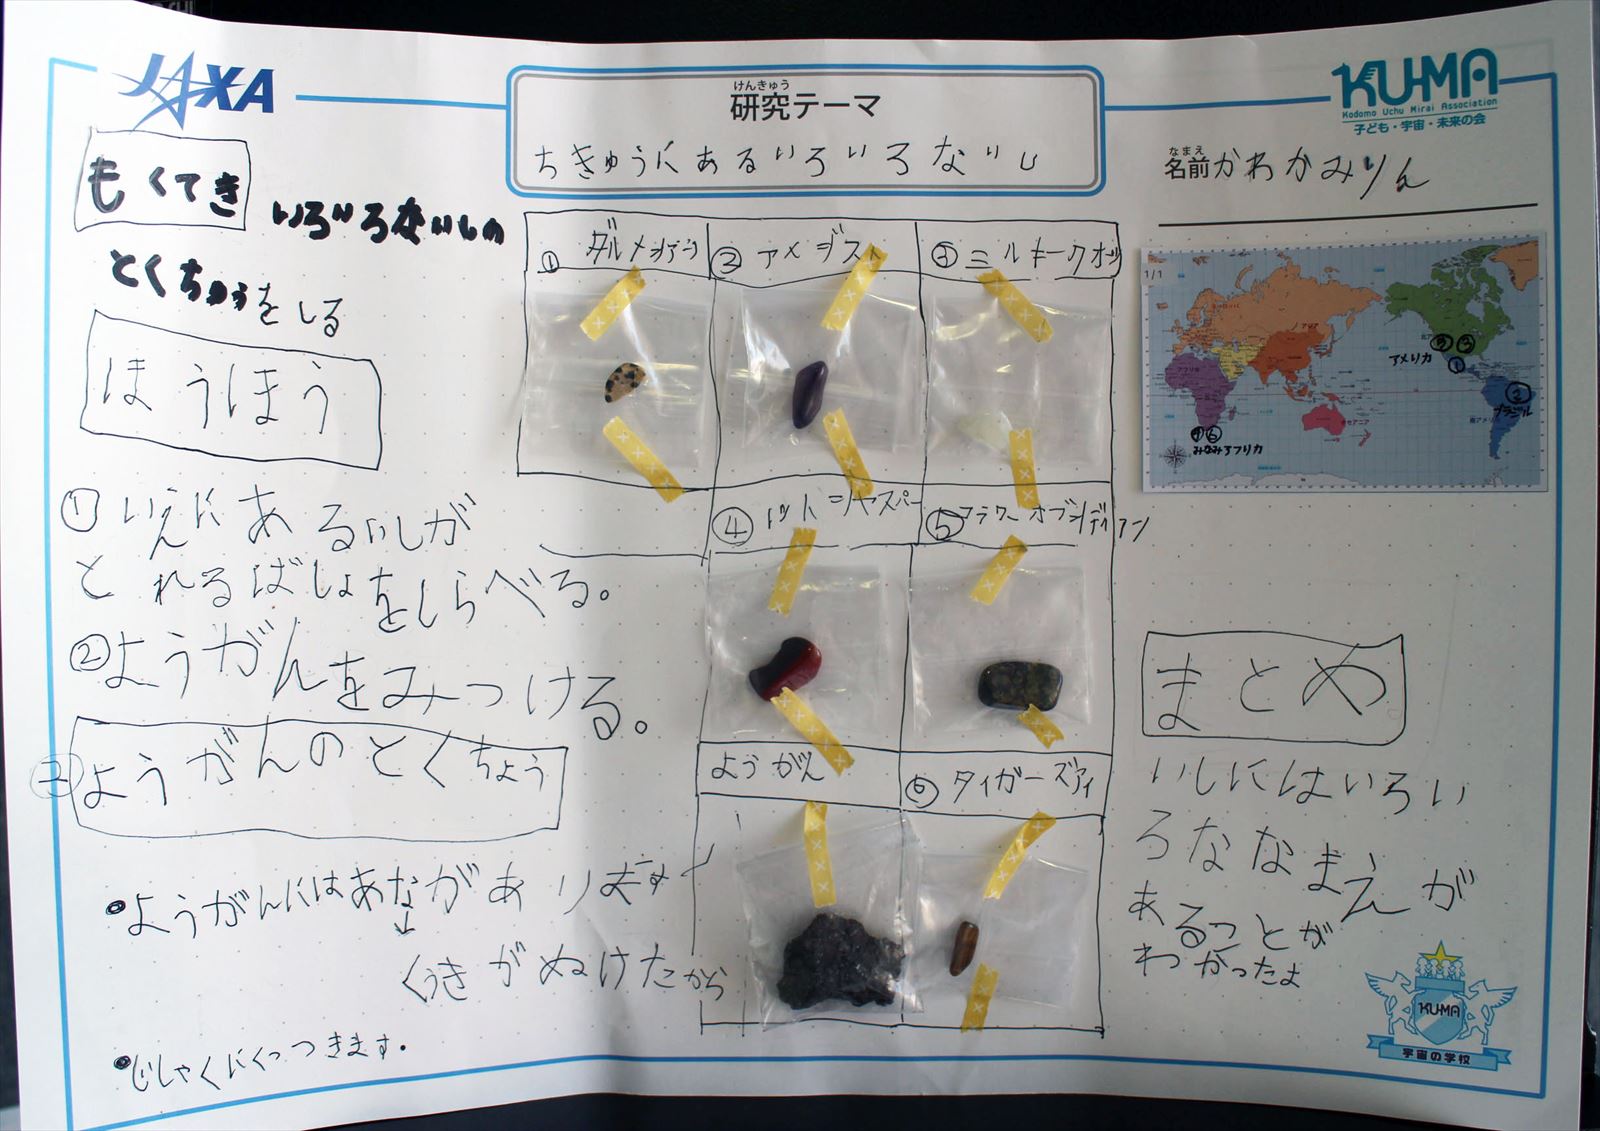 JAXA
けんきゅう
研究テーマ
ちきゅうにあるいろいろないし
KU-MA
Kodomo Uchu Mirai Association
子ども・宇宙・未来の会
なまえ
名前 かわかみりん
もくてき
いろいろないしの
とくちょうをしる
ほうほう
① いえにあるいしが
とれるばしょをしらべる。
②ようがんをみつける。
③ようがんのとくちょう
・ようがんにはあながあります
↓
くうきがぬけたから
・じしゃくにくっつきます.
① ダルメシアン
② アメジスト
③ ミルキークオツ
⑤ フラワーオブシディアン
ようがん
⑥ タイガーズアイ
1/1
アジア
アフリカ
オセアニア
南アメリカ
アメリカ
⑤ ③
①
②
ブラジル
④ ⑥
みなみアフリカ
まとめ
いしにはいろい
ろななまえが
あることが
わかったよ
KU-MA
宇宙の学校